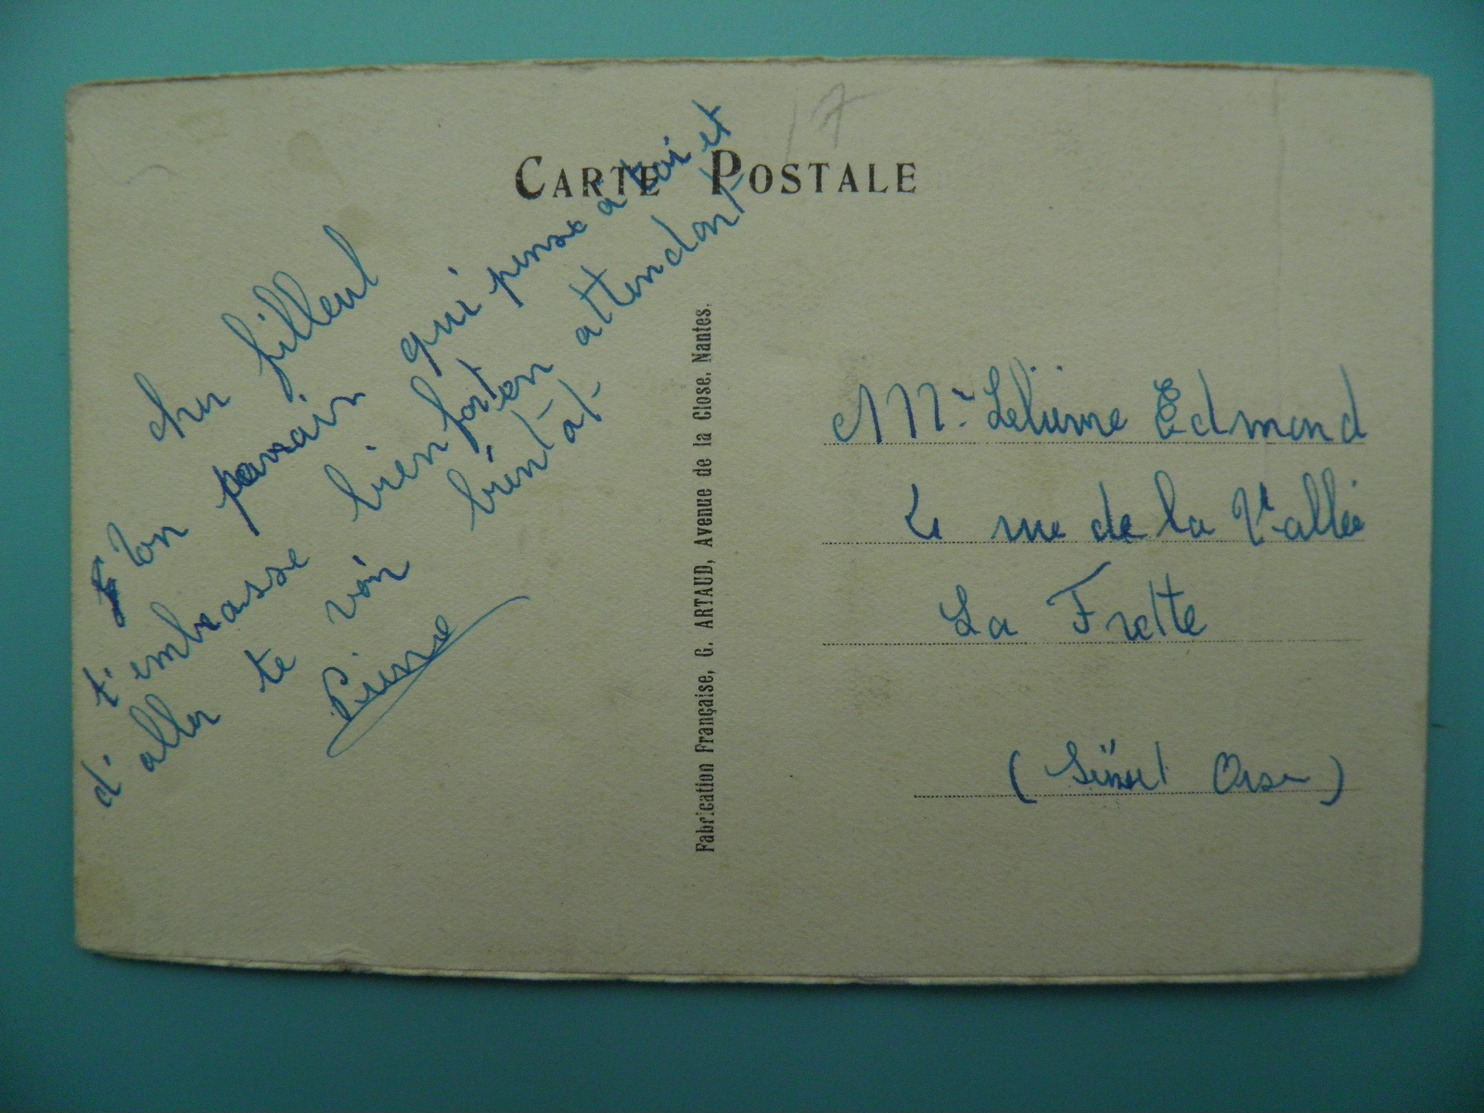 17
CARTE POSTALE
cher filleul
ton parrain qui pense à toi et
t'embrasse bien fort en attendant
d'aller te voir bientôt
Pierre
Fabrication Française, G. ARTAUD, Avenue de la Close, Nantes.
Mr Lelièvre Edmond
rue de la Vallée
La Frette
(Seine et Oise)